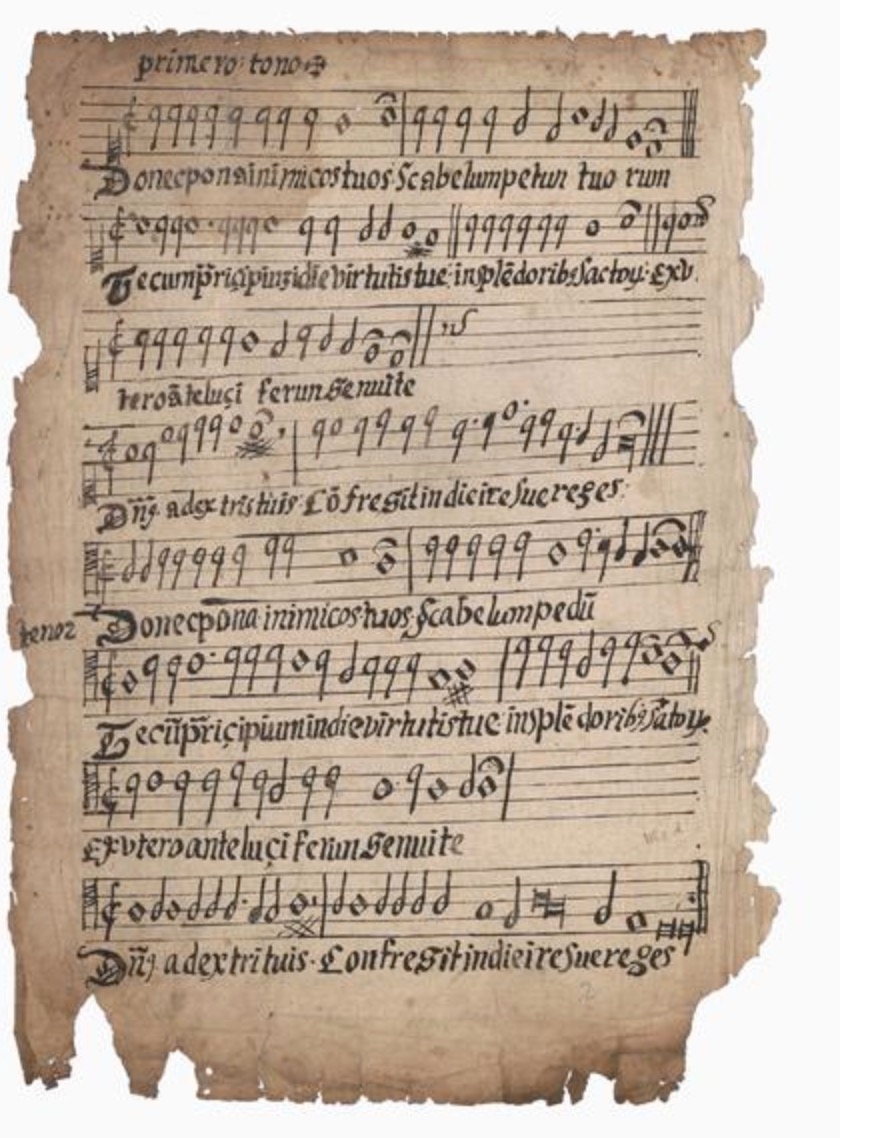 primero: tono
Donec ponã inimicos tuos Scabelum petun tuo rum
Tecum p̃riçipiunidie virtutis tue in splẽdorib9 Sactoꝝ: Exv.
teroãteluçi ferun Genuite
Dñ9 adextris tuis Cõfregit in die ire Sue reges:
tenor
Donec põna inimicos tuos Scabelum pedũ
Tecũ p̃riçipium in die virtutis tue in splẽdorib9 Satoꝝ.
Exvtero anteluçi ferun Genuite
Dñ9 adextri tuis. Confregit in die ire Sue reges